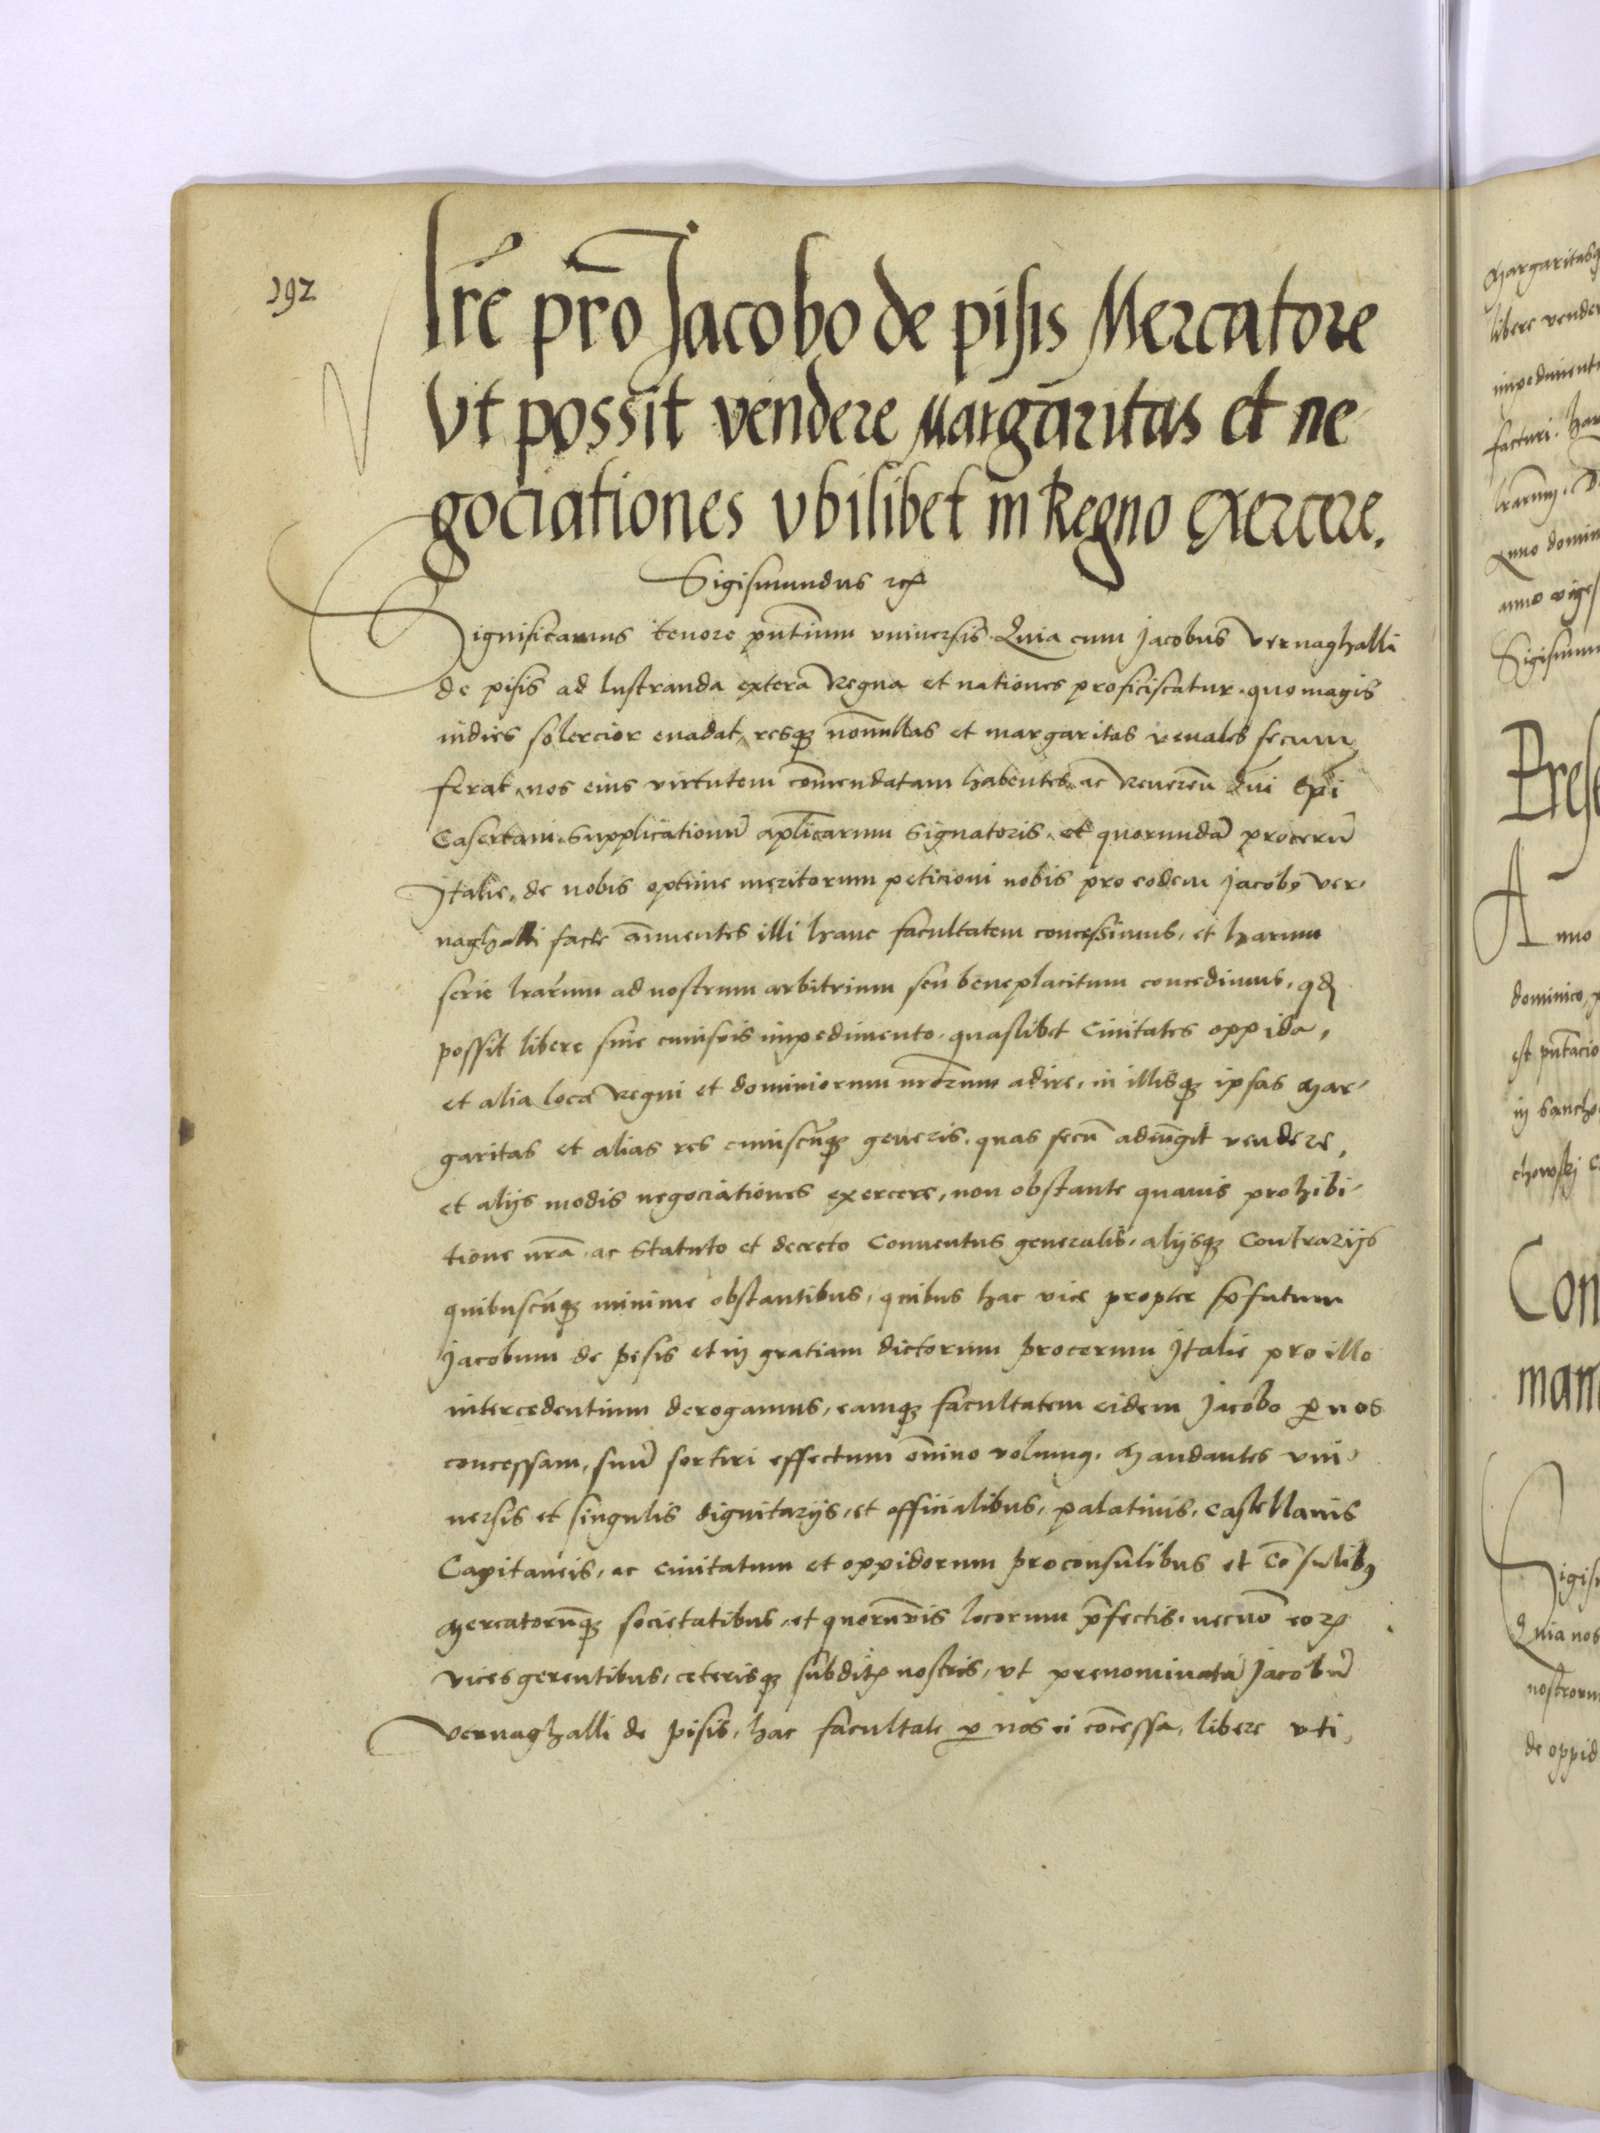 192
Lr̃e pro Jacobo de pisis Mercatore
Vt possit vendere Margaritas et ne
gociationes vbilibet in Regno exercere.
Sigismundus rex
Significamus tenore pñtium vniuersis. Quia cum Jacobus vernaghalli
de pisis ad lustranda extera Regna et nationes proficiscatur. quo magis
indies solercior euadat, resq; nõnullas et margaritas venales secum
ferat, nos eius virtutem cõmendatam habentes, ac Reuerẽn dñi Epĩ
Casertani, Supplicationũ apl̃icarum Signatoris, et quorundã procerũ
Italie, de nobis optime meritorum peticioni nobis pro eodem Jacobo ver-
naghalli facte ãnuentes illi hanc facultatem concessimus, et harum
serie lrãrum ad nostrum arbitrium seu beneplacitum concedimus, qđ
possit libere sine cuiusuis impedimento, quaslibet Ciuitates oppida,
et alia loca Regni et dominiorum nrõrum adire, in illisq; ipsas Mar-
garitas et alias res cuiuscũq; generis, quas secũ aduẽgit vendere,
et alijs modis negociationes exercere, non obstante quauis prohibi-
tione nrã, ac Statuto et decreto Conuentus generalis, alijsq; Contrarijs
quibuscũq; minime obstantibus, quibus hac vice propter
Jacobum de pisis et in gratiam dictorum procerum Italie pro illo
intercedentium derogamus, eamq; facultatem eidem Jacobo p̱ nos
concessam, suũ sortiri effectum õmino volumꝰ. Mandantes vni-
uersis et singulis dignitarijs, et officialibus, palatinis, castellanis
Capitaneis, ac ciuitatum et oppidorum proconsulibus et cõsulibꝰ
Mercatorũq; societatibus, et quorũuis locorum p̃fectis, necnõ eoꝝ
vices gerentibus, ceterisq; subditꝭ nostris, vt prenominatũ Jacobũ
vernaghalli de pisis, hac facultate p̱ nos ei cõcessa, libere vti,
Margaritasq
libere vender
impediment
facturi. har
lrarum
Anno domin
anno viges
Sigismun
Pres
Anno
dominico,
est pñtacio
in Sancho
chowski
Con
man
Sigis
Quia nos
nostrorum
de oppid